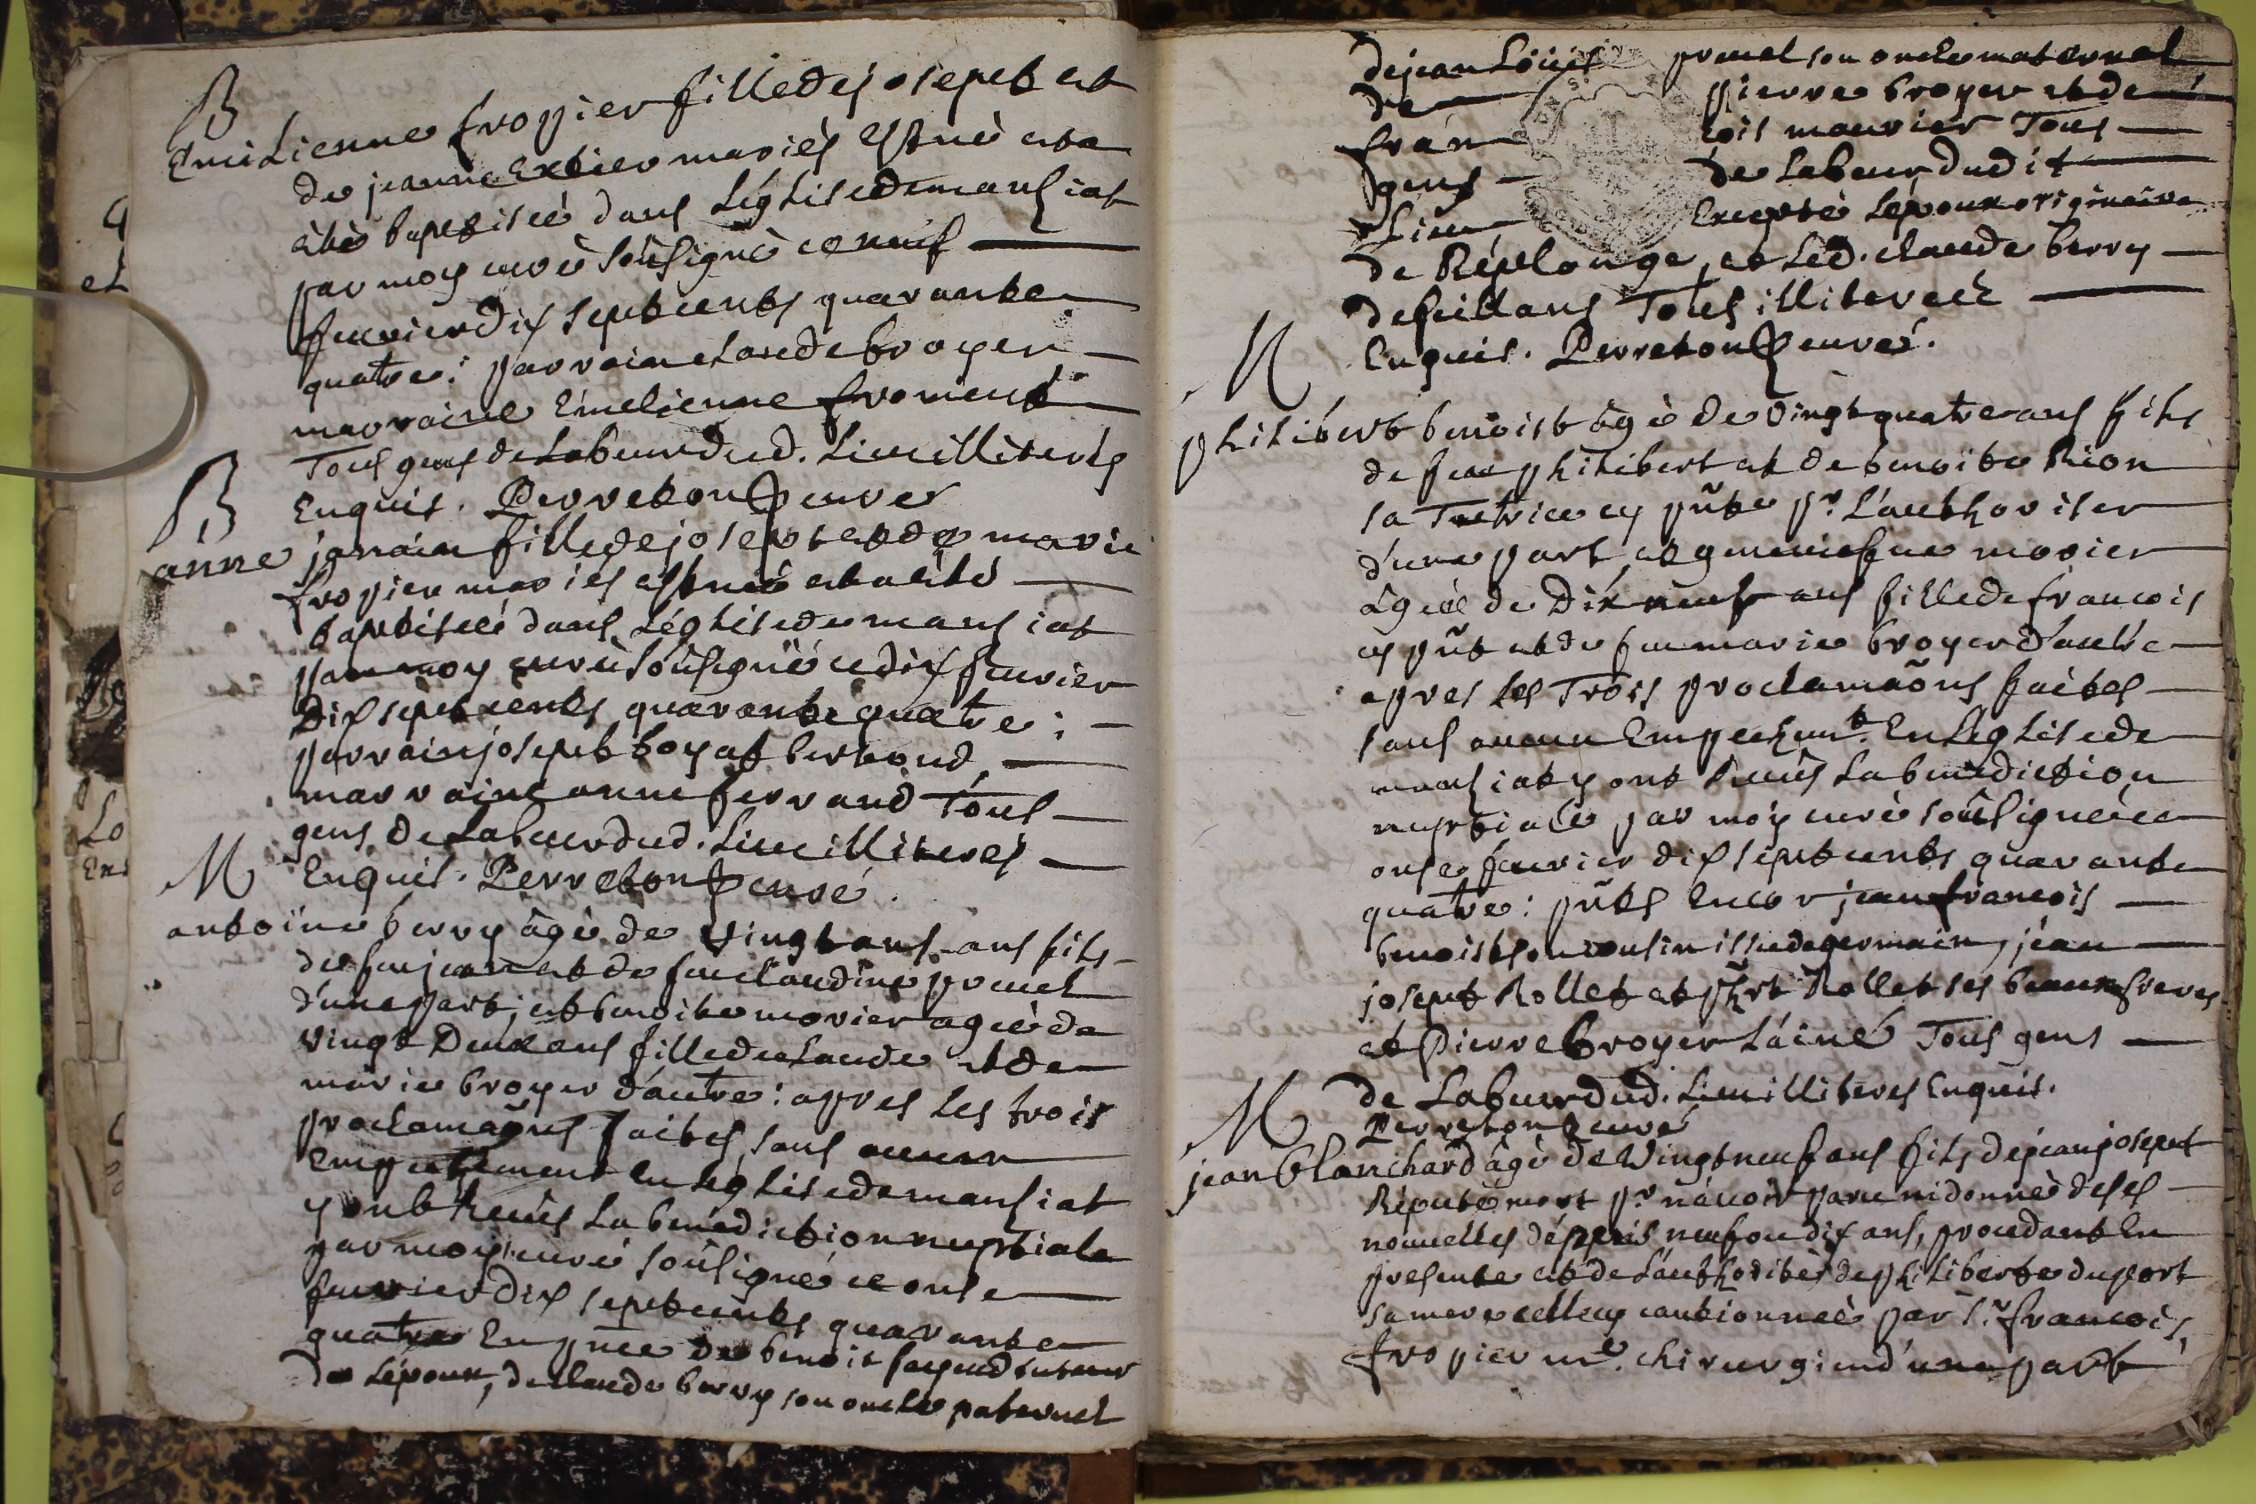 B
Emilienne fropier fille de joseph et
de jeanne Extier mariés est né et a
été baptisée dans Léglise de mansiat
par moy curé soûsigné ce neuf
fevrier dix sept cents quarante
quatre : parrain claude broyer
marraine Emelienne froment
Tous gens de Labeur dud. Lieu illiterés
Enquis. Perreton curé
B
anne janain fille de josept et de marie
fropier mariés est née et a été
baptisée dans Léglise de mansiat
par moy curé soûsigné ce dix fevrier
Dix sept cents quarante quatre :
parrain josept boyat bertond
marraine anne ferrand Tous
gens de Labeur dud. Lieu illiterés
Enquis. Perreton curé.
M
antoine berry âgé de vingt ans ans fils
de feu jean et de feu claudine pruel
d'une part, et benoite morier agée de
vingt Deux ans fille de claude et de
marie broyer d'autre : apres Les trois
proclamaõns faites sans aucun
Empechement En Léglise de mansiat
y ont Receûs La bénédiction nuptiale
par moy curé soûsigné ce onse
fevrier dix sept cents quarante
quatre En pñce de benoit tuteur
de Lépoux, de claude berry son oncle paternel
a
et
Lo
Ens
de jean Loüis pruel son oncle maternel
de pierre broyer et de
fran cois mourier Tous
gens de Labeur dudit
Lieu Excepté Lépoux originaire
de Réplonge, et Led. claude berry
defeillans Tous illiterés
Enquis. Perreton curé.
M
philibert benoist âgé de vingt quatre ans fils
de feu philibert et de benoite Rion
sa Tutrice cy pñte pr. L'authoriser
d'une part, et geneviesve morier
âgée de Dix neuf ans fille de francois
cy pñt et de feu marie broyer d'autre
apres les Trois proclamaõns faites
sans aucun Empechemt. En Léglise de
mansiat y ont Receûs La benediction
nuptiale par moy curé soûsigné ce
onse fevrier dix sept cents quarante
quatre : pñts Encor jean francois
benoist son cousin issu de germain, jean
josept Rollet et phrt Rollet ses beaux freres
et Pierre broyer L'ainé Tous gens
de Labeur dud. Lieu illiterés Enquis.
Perreton curé
M
jean blanchard âgé de Vingt neuf ans fils de jean josept
Réputé mort pr. n'avoir paru ni donné de ses
nouvelles depuis neuf ou dix ans, procedant En
presence et de L'authorité de philiberte duport
sa mere celle cy cautionneé par sr. francois
fropier me. chirurgien d'une part